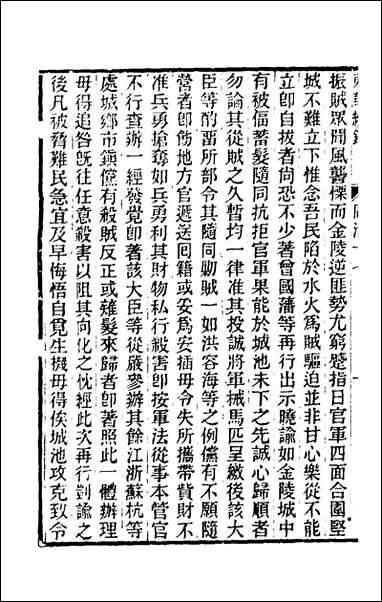 東華續錄　同治十七
振賊眾聞風襲慄而金陵逆匪勢尤窮蹙指日官軍四面合圍堅
城不難立下惟念吾民陷於水火為賊驅迫並非甘心樂從不能
立卽自拔者尙恐不少著曾國藩等再行出示曉諭如金陵城中
有被偪蓄髮隨同抗拒官軍果能於城池未下之先誠心歸順者
勿論其從賊之久暫均一律准其投誠將軍械馬匹呈繳後該大
臣等酌畱所部令其隨同勦賊一如洪容海等之例儻有不願隨
營者卽飭地方官遞送囘籍或妥為安插毋令失所攜帶貲財不
准兵勇搶奪如兵勇利其財物私行殺害卽按軍法從事本管官
不行查辦一經發覺卽著該大臣等從嚴參辦其餘江浙蘇杭等
處城鄉市鎮儻有殺賊反正或薙髮來歸者卽著照此一體辦理
毋得追咎旣往任意殺害以阻其向化之忱經此次再行剴諭之
後凡被脅難民急宜及早悔悟自覓生機毋得俟城池攻克致令